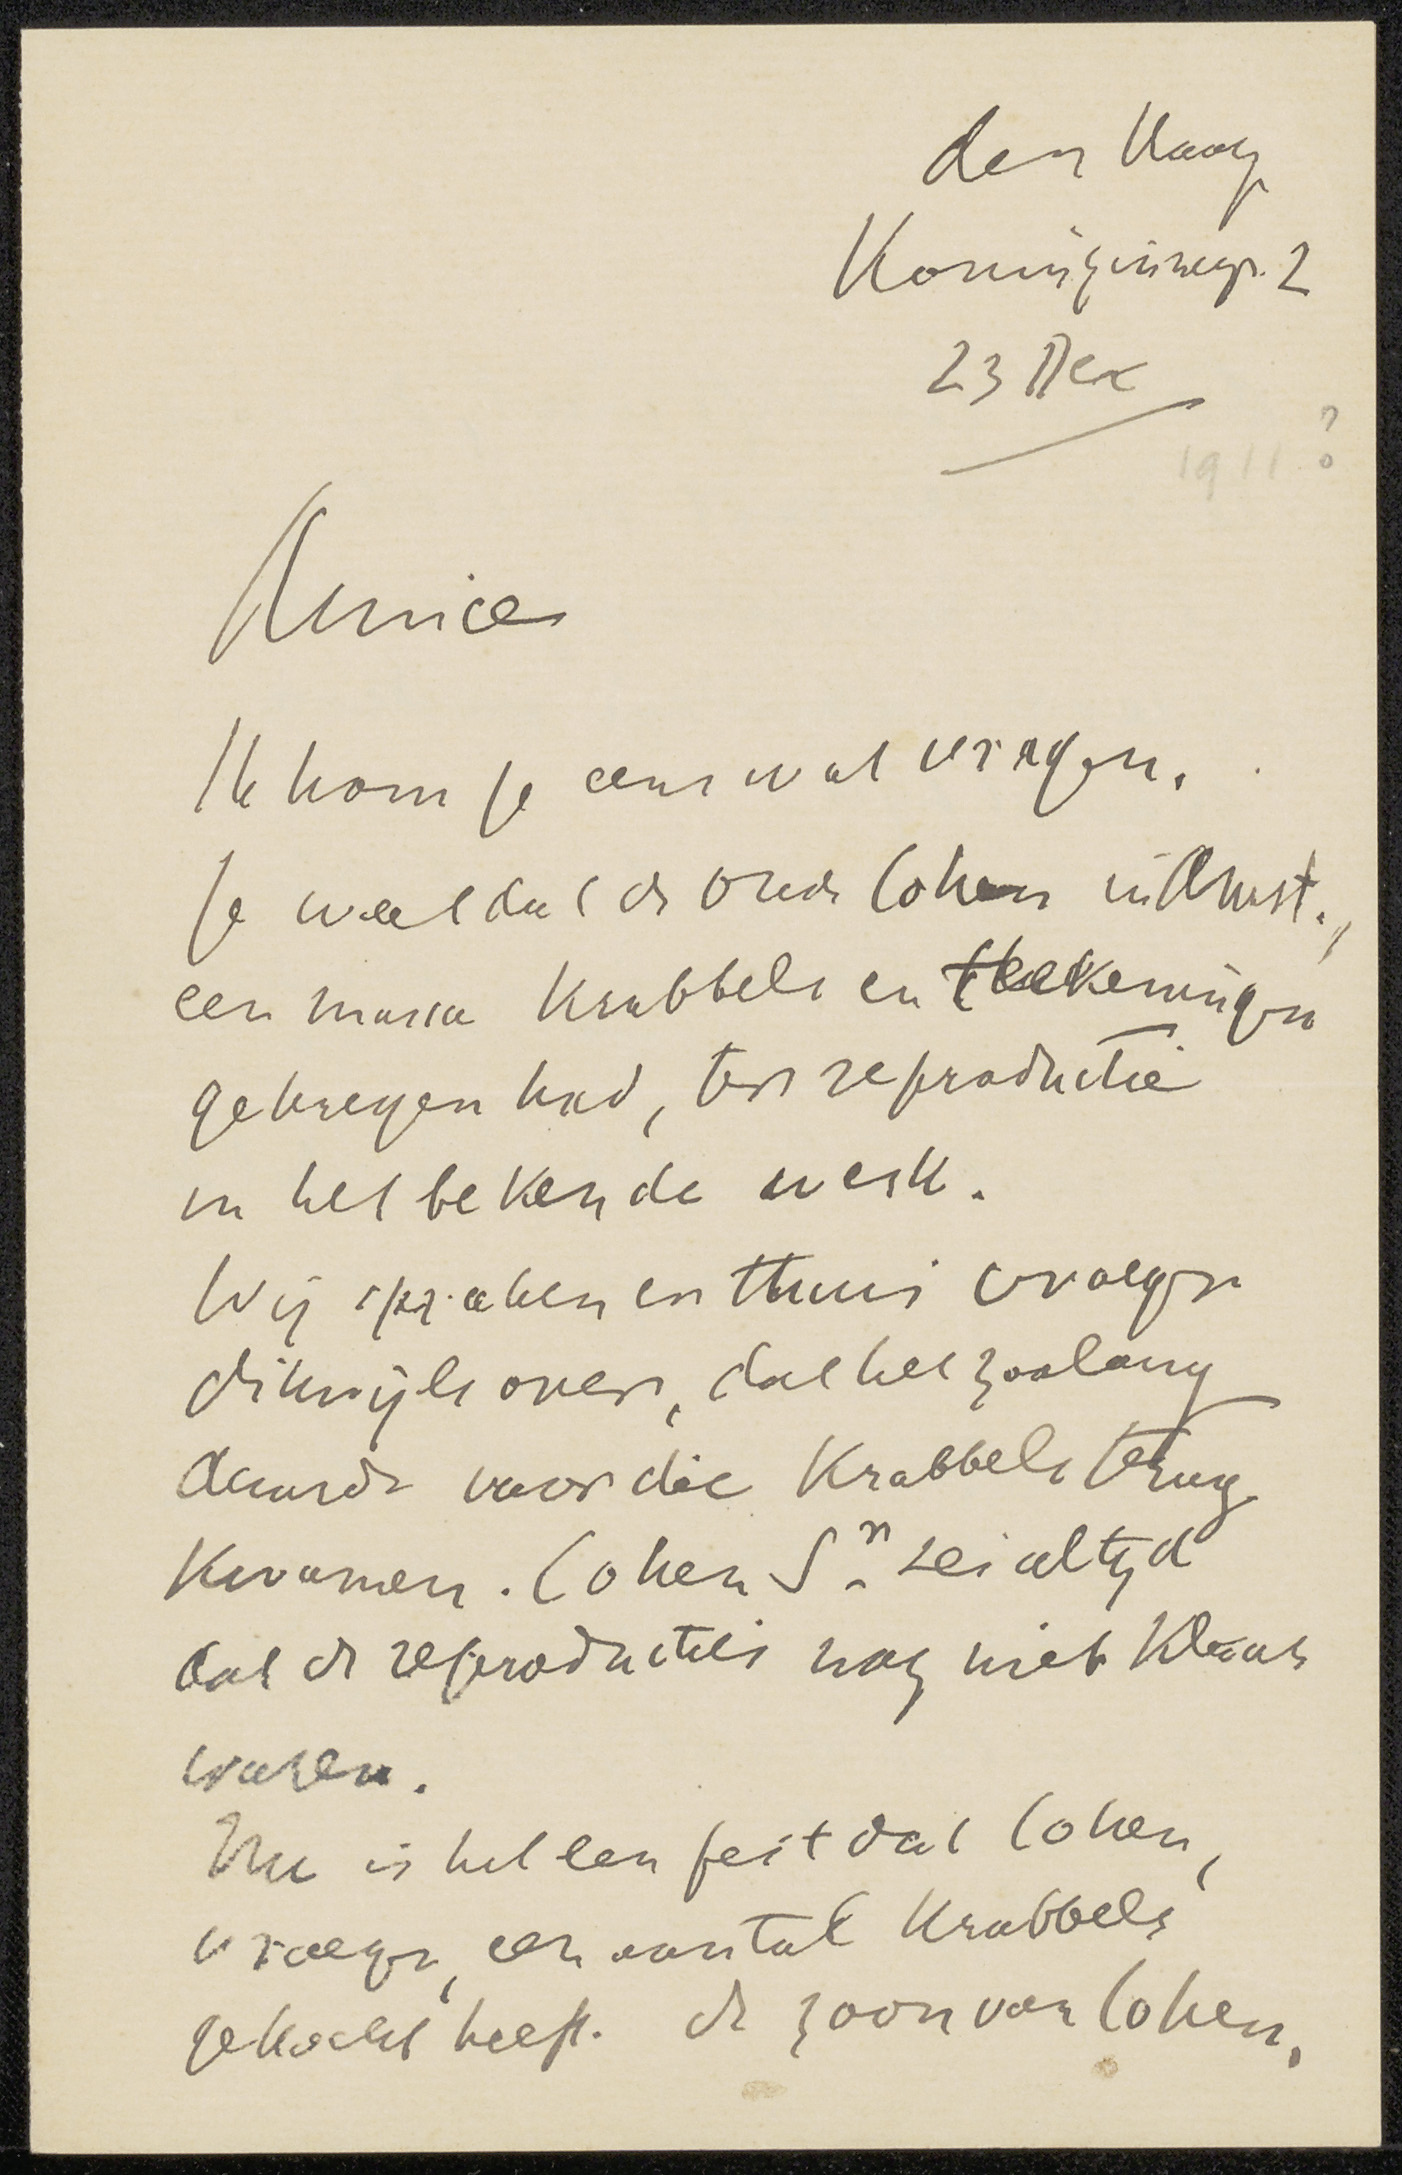 den Haag
Koninginneg. 2
23 Dec
1911?
Amice
Ik kom je eens wat vragen.
Je weet dat de oude Cohen in Amst.,
een massa krabbels en teekeningen
gekregen had, ter reproductie
in het bekende werk.
Wij spraken er thuis vroeger
dikwijls over, dat het zoolang
duurde voor die krabbels terug
kwamen. Cohen Sr. zei altijd
dat de reproducties nog niet klaar
waren.
Nu is het een feit dat Cohen,
vroeger, een aantal krabbels
gekocht heeft. de zoon van Cohen,